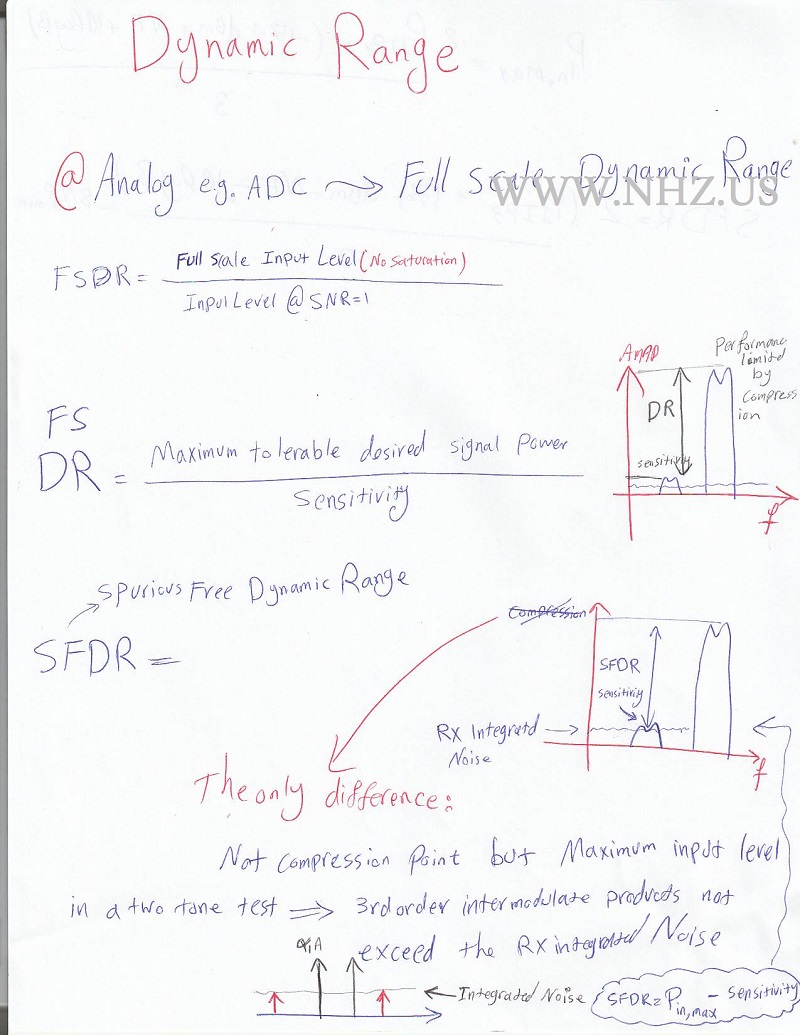 Dynamic Range
@ Analog e.g. ADC → Full Scale Dynamic Range
WWW.NHZ.US
FSDR = Full Scale Input Level (No saturation)
Input Level @ SNR=1
Amp
Performanc
limitd
by
compress
ion
DR
sensitivity
f
FS
DR = Maximum tolerable desired signal Power
Sensitivity
Spurious Free Dynamic Range
SFDR =
Compression
SFDR
sensitiviy
RX Integratd
Noise
f
The only difference:
Not compression Point but Maximum input level
in a two tone test ⇒ 3rd order intermodulate products not
exceed the RX integrated Noise
Integrated Noise
SFDR = Pin,max - sensitivity